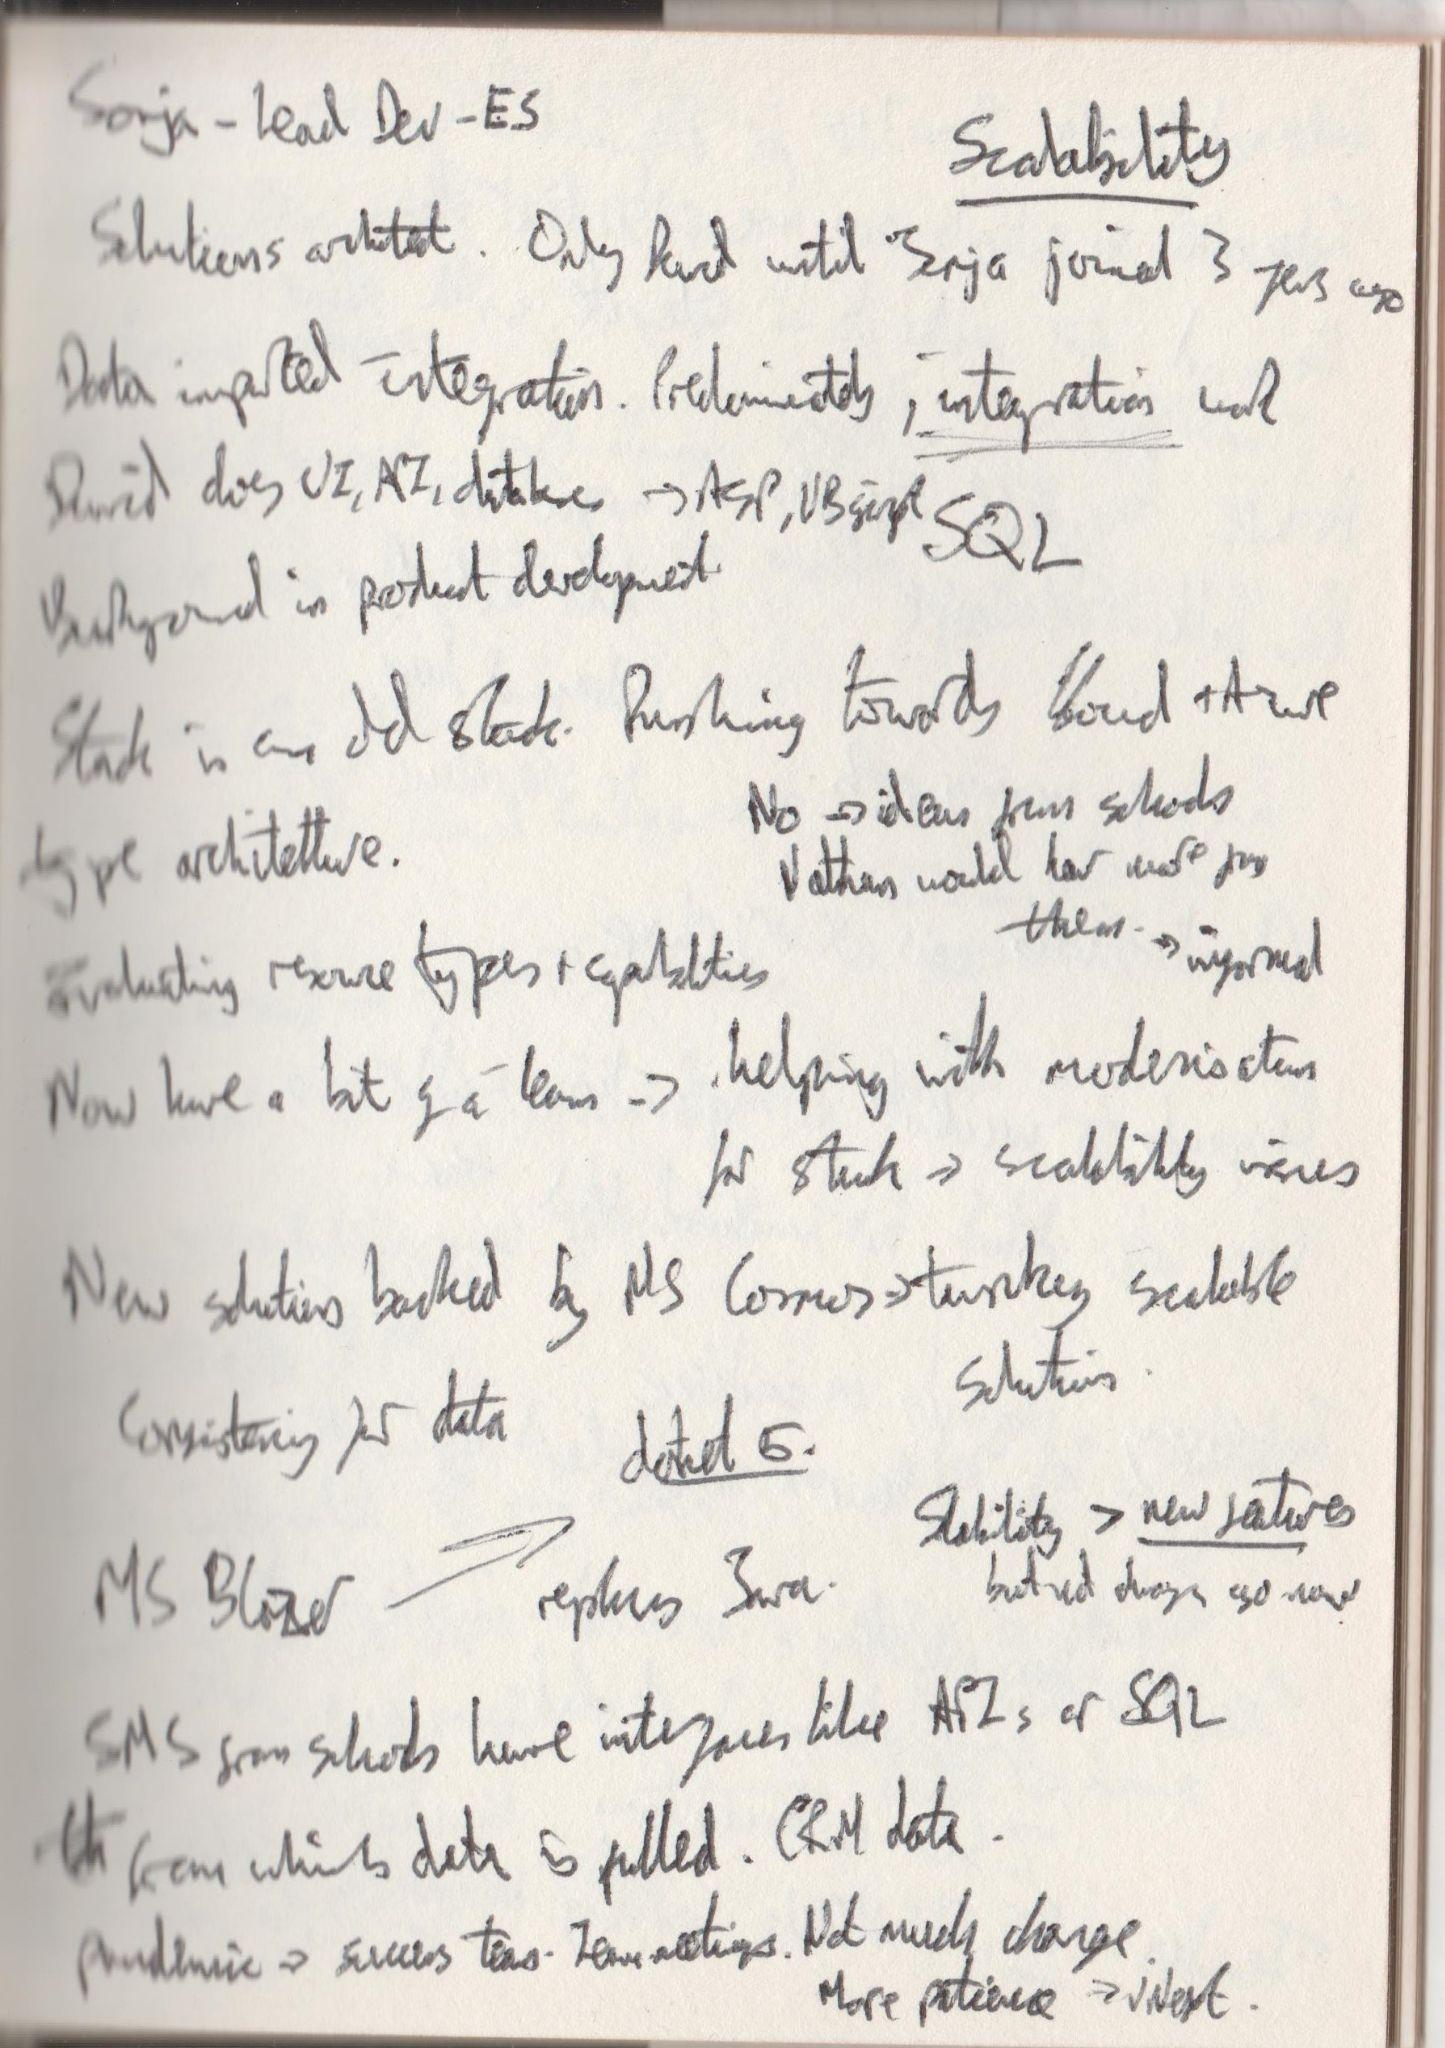 Sonja - Lead Dev - ES
Scalability
Solutions architect. Only David until Sonja joined 3 years ago
Data imported integration. Predominately, integration work
David does UI, API, databases → ASP, VBScript SQL
Background in product development
Stack is an old stack. Pushing towards cloud + Azure
type architetture.
No → ideas from schools
would have more from
them. → informed
Evaluating resource types + capabilities
Now have a bit of a team → helping with modernisation
for stack → scalability issues
New solutions backed by MS Cosmos → turnkey scalable
solutions.
Consistency for data
dotnet 5.
Stability > new features
MS Blazor
replaces
but ago now
SMS from schools have interfaces like APIs or SQL
from which data is pulled. CRM data.
pandemic → success team. Team meetings. Not much change.
More patience → vNext.